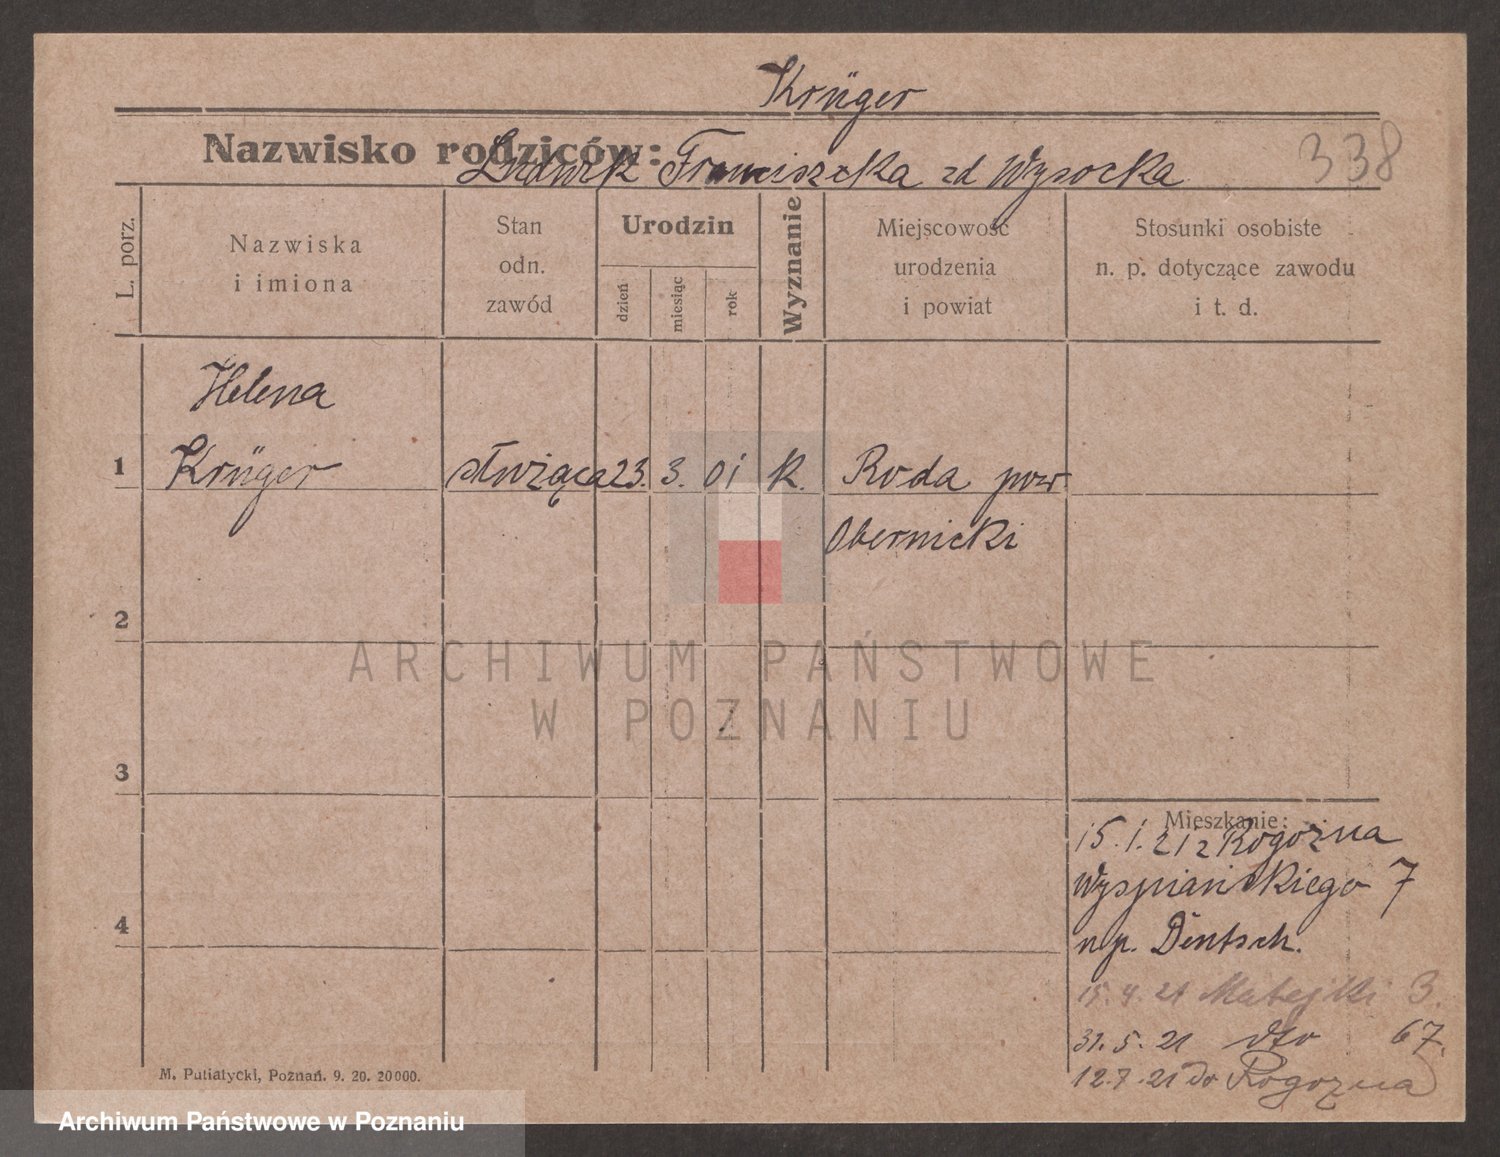 Krüger
Nazwisko rodziców: Ludwik Franciszka zd Wysocka
338
L. porz.
Nazwiska
i imiona
Stan
odn.
zawód
Urodzin
dzień
miesiąc
rok
Wyznanie
Miejscowość
urodzenia
i powiat
Stosunki osobiste
n. p. dotyczące zawodu
i t. d.
Helena
1 Krüger służąca 23. 3. 01 k. Roda pow
Obernicki
2
ARCHIWUM PAŃSTWOWE
W POZNANIU
3
Mieszkanie:
15.1.21 z Rogoźna
Wyspiańskiego 7
np. Deutsch.
4
15.4.21 Matejki 3.
31.5.21 dto 67.
12.7.21 do Rogoźna
M. Putiatycki, Poznań. 9. 20. 20000.
Archiwum Państwowe w Poznaniu